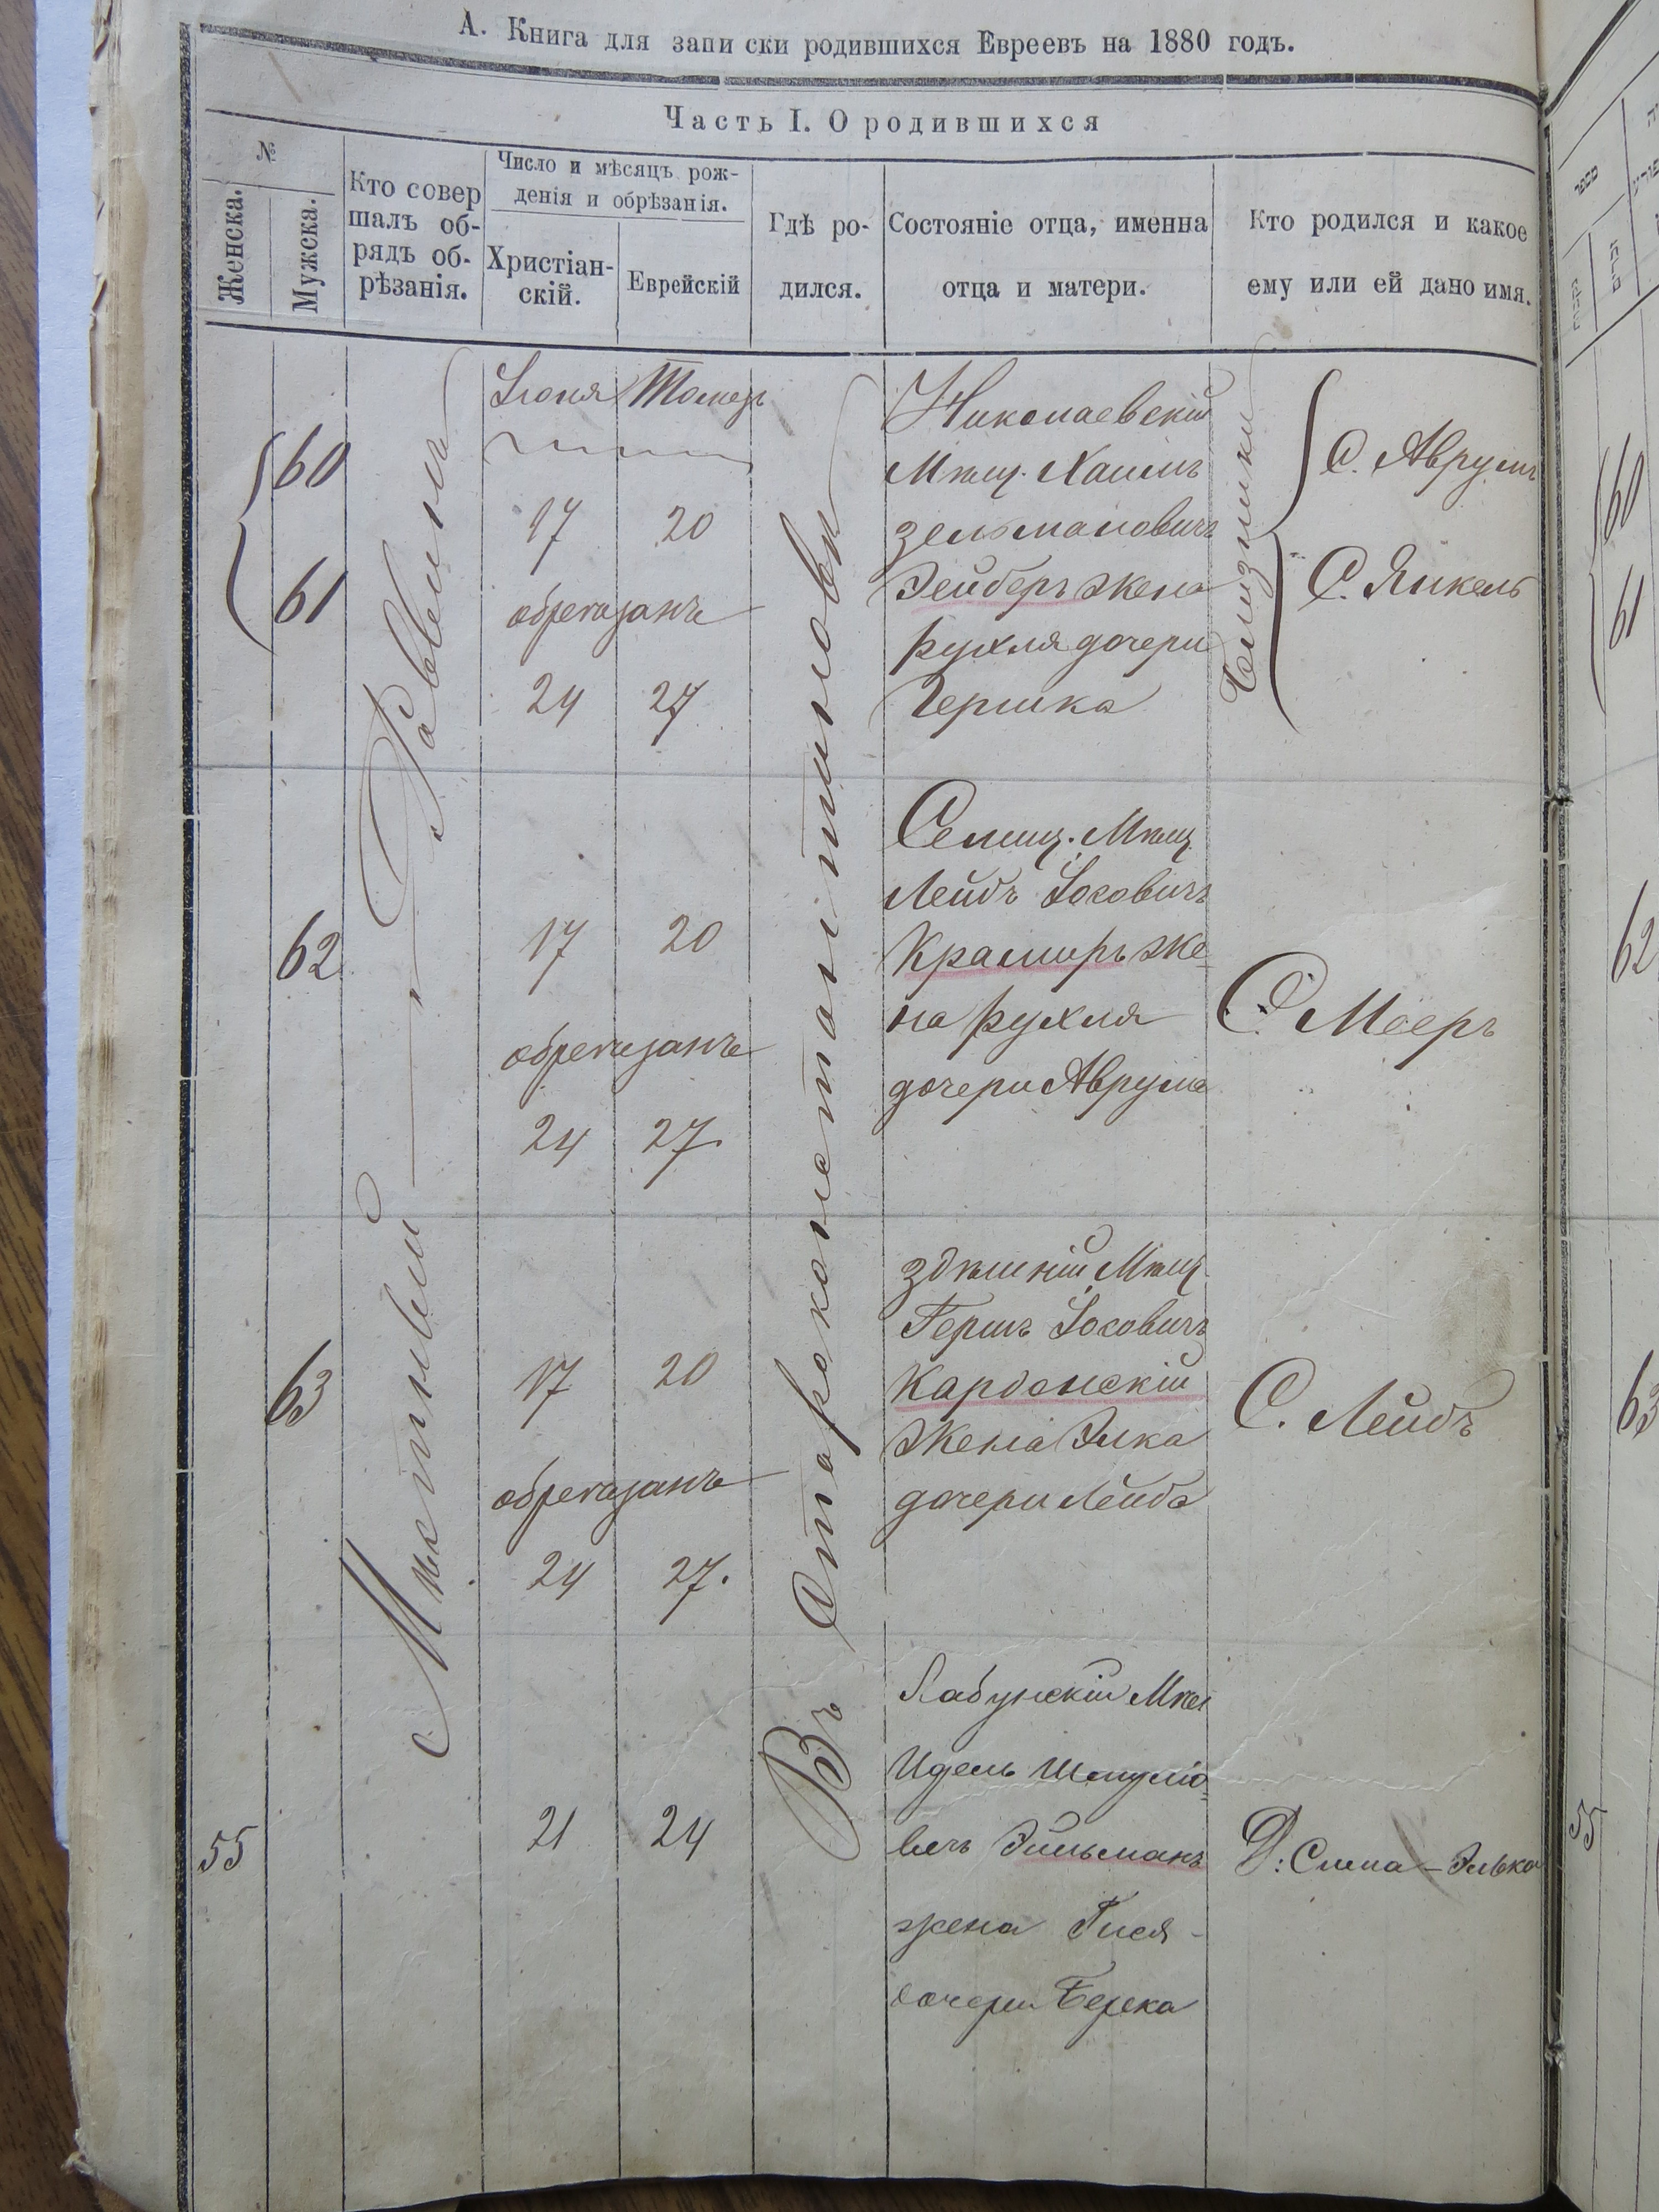 А. Книга для записки родившихся Евреевъ на 1880 годъ.
Часть I. О родившихся
№
Женска.
Мужска.
Кто совер
шалъ об-
рядъ об-
рѣзанія.
Число и мѣсяцъ рож-
денія и обрѣзанія.
Христіан-
скій.
Еврейскій
Гдѣ ро-
дился.
Состояніе отца, именна
отца и матери.
Кто родился и какое
ему или ей дано имя.
Мѣстный Раввинъ
Въ Староконстантиновѣ
Іюня
60
61
17 20
обрѣзанъ
24 27
Николаевскій
Мѣщ. Хаимъ
Зельмановичъ
жена
Рухля дочери
Гершка
Близнецы
С. Аврумъ
С. Янкель
62
17 20
обрѣзанъ
24 27.
Мѣщ.
Лейбъ Іосовичъ
Крамиръ же-
на Рухля
дочери Аврума
С. Моеръ
63
17 20
обрѣзанъ
24 27.
здѣшній Мѣщ.
Гершъ Іосовичъ
Кардонскій
жена Элка
дочери Лейба
С. Лейбъ
55
21 24
Лабунскій Мѣщ
Идель Шмуліо-
вичъ
жена Гися
дочери Берка
Д: Сима-Элька
60
61
62
63
55